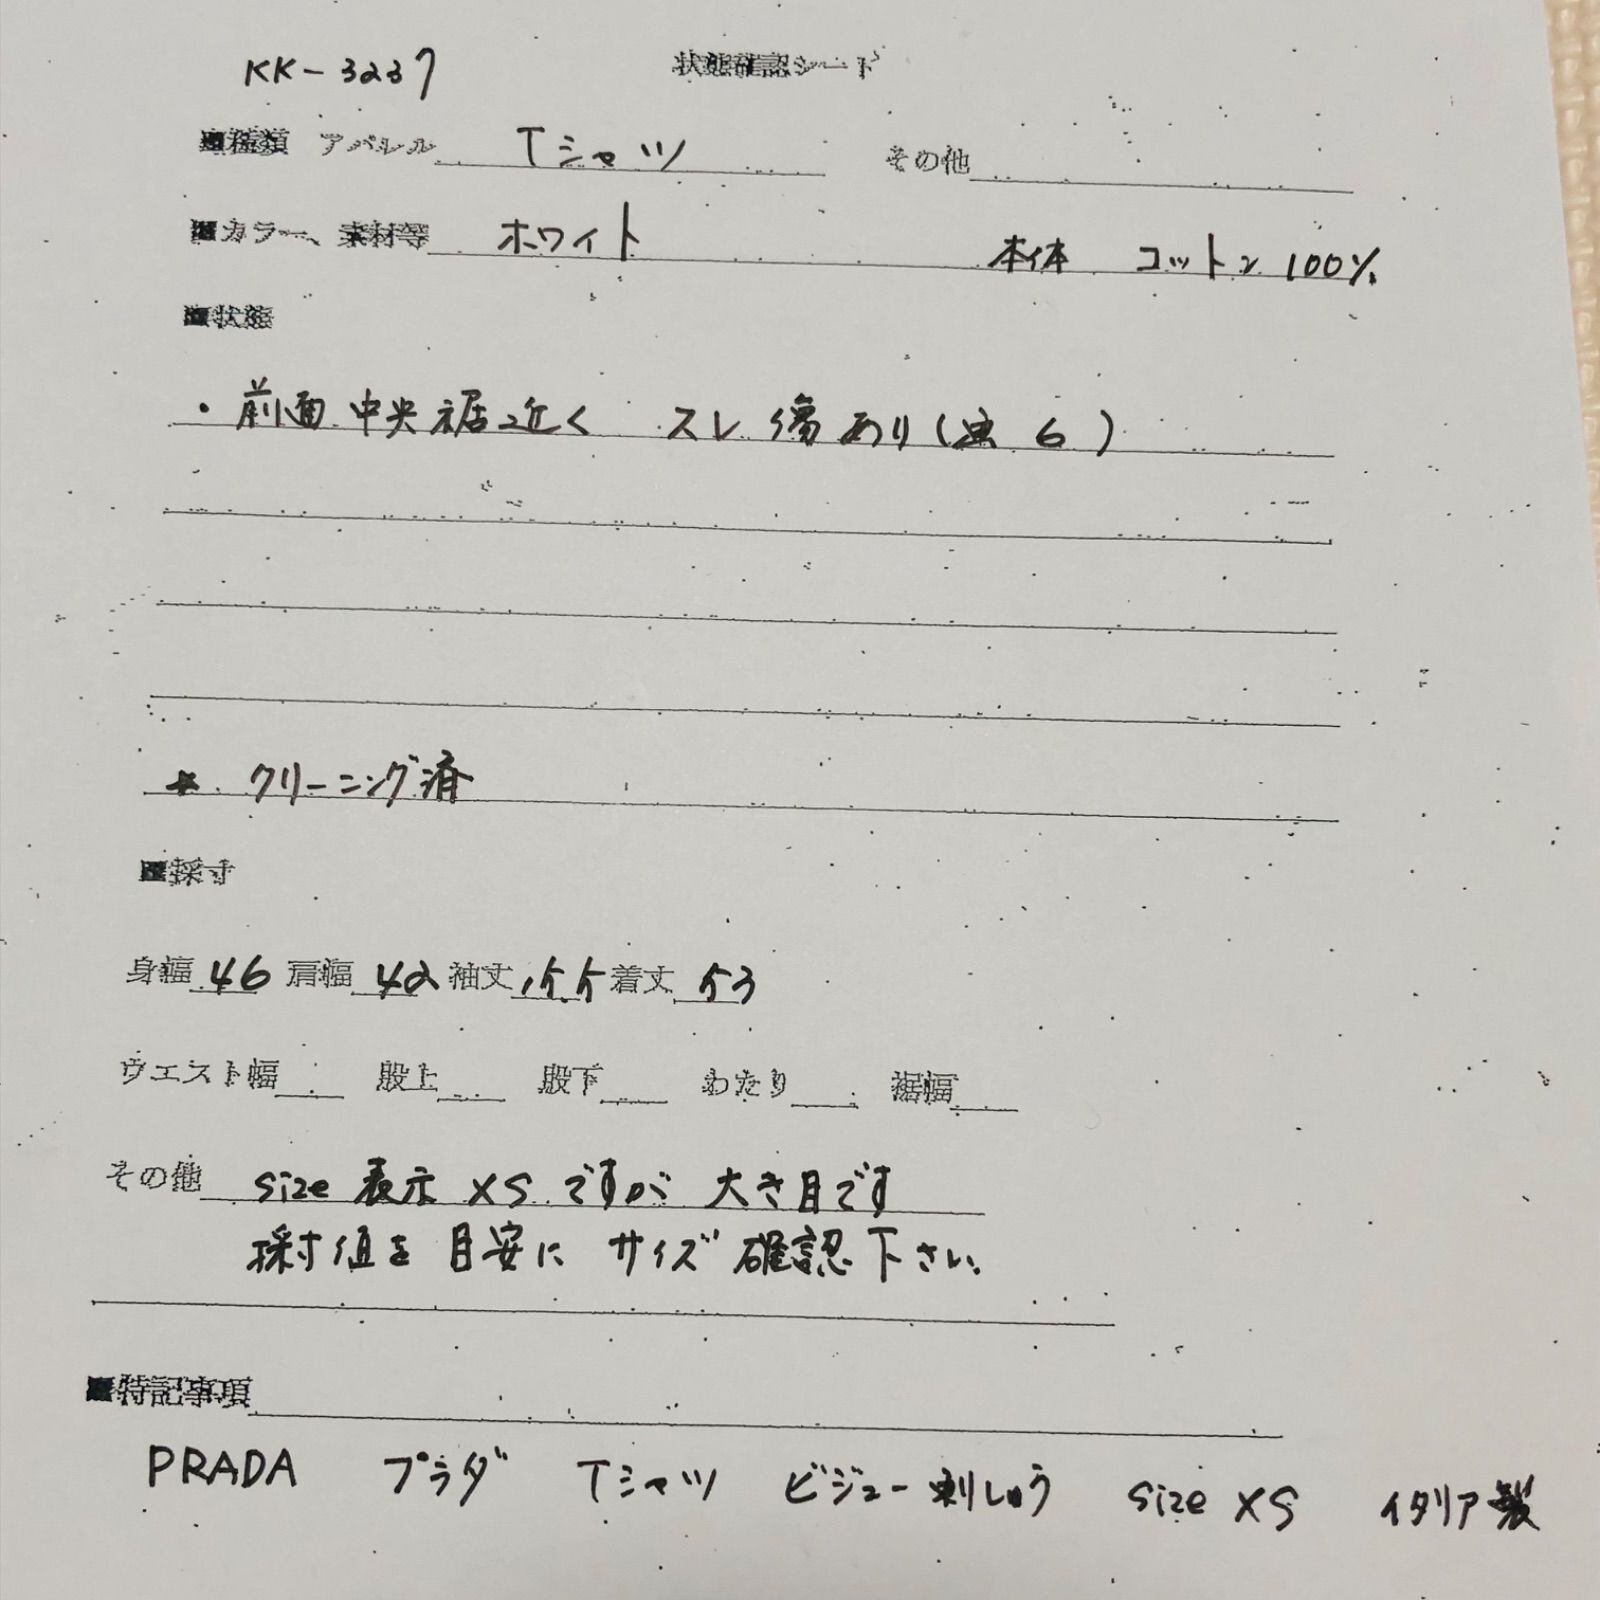 KK-3237 状態確認シート
■種類 アパレル Tシャツ その他
■カラー、素材等 ホワイト 本体 コットン 100%
■状態
・前面中央裾近く スレ傷あり( 6 )
★ クリーニング済
■採寸
身幅 46 肩幅 42 袖丈 15.5 着丈 53
ウエスト幅 股上 股下 わたり 裾幅
その他 size 表示 XS ですが 大き目です
採寸値を目安に サイズ確認下さい
■特記事項
PRADA プラダ Tシャツ ビジュー刺しゅう size XS イタリア製